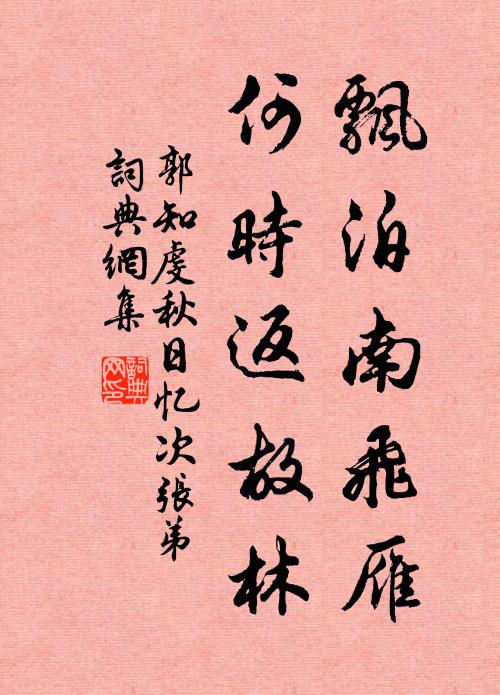 飄泊南飛雁
何時返故林
郭知虔秋日忆次張弟
詞典網集
詞典網印